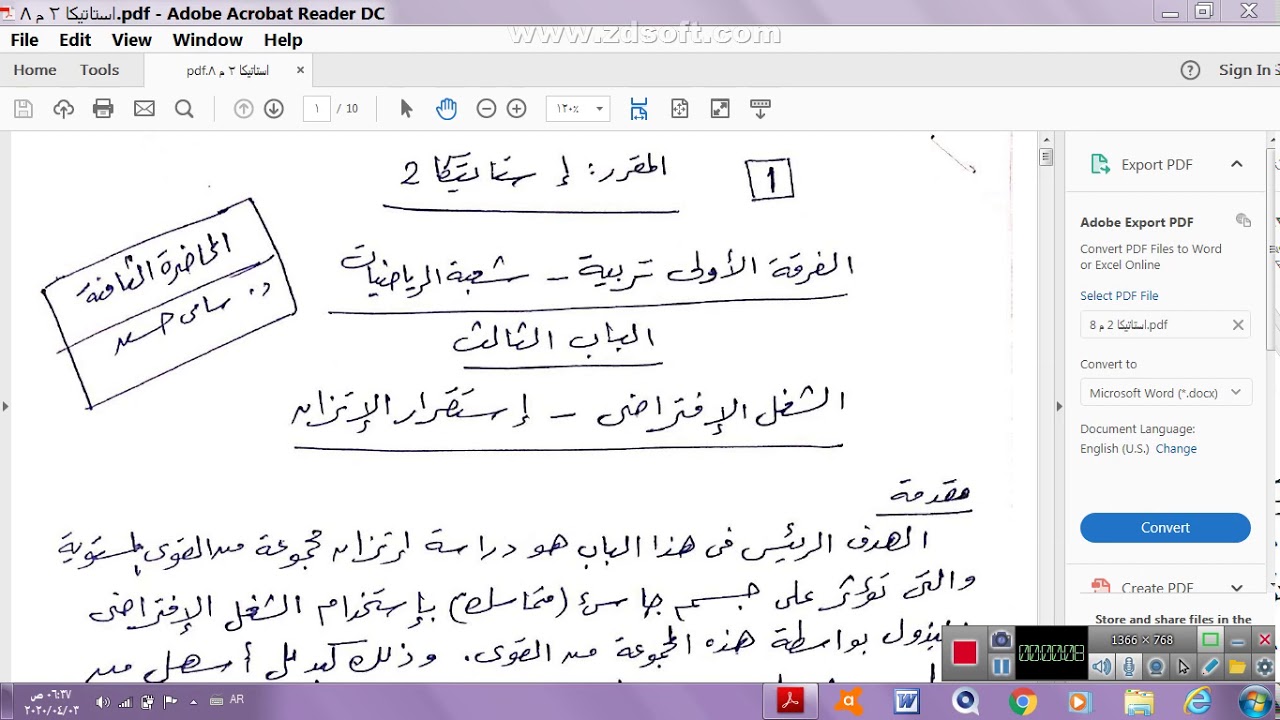 استاتيكا ٢ م ٨.pdf - Adobe Acrobat Reader DC
www.zdsoft.com
File Edit View Window Help
Home Tools
استاتيكا ٢ م ٨.pdf ×
Sign In
١ / 10
١٢٠%
1
المقرر: إستاتيكا 2
المحاضرة الثامنة
د. سامى
الفرقة الأولى تربية - شعبة الرياضيات
الباب الثالث
الشغل الإفتراضى - إستقرار الإتزان
مقدمة
الهدف الرئيس فى هذا الباب هو دراسة إتزان مجموعة من القوى المستوية
والتى تؤثر على جسم جاسئ (متماسك) بإستخدام الشغل الإفتراضى
المبذول بواسطة هذه المجموعة من القوى. وذلك كبديل أسهل من
Export PDF
Adobe Export PDF
Convert PDF Files to Word
or Excel Online
Select PDF File
استاتيكا 2 م 8.pdf
Convert to
Microsoft Word (*.docx)
Document Language:
English (U.S.) Change
Convert
Create PDF
Store and share files in the
1366 × 768
AR
٠٦:٣٧ ص
٢٠٢٠/٠٤/٠٣